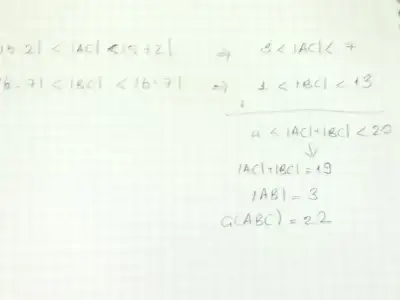 2| < |AC| < |5+2| ⇒ 3 < |AC| < 7
|6-7| < |BC| < |6+7| ⇒ 1 < |BC| < 13
+
4 < |AC|+|BC| < 20
↓
|AC|+|BC| = 19
|AB| = 3
Ç(ABC) = 22